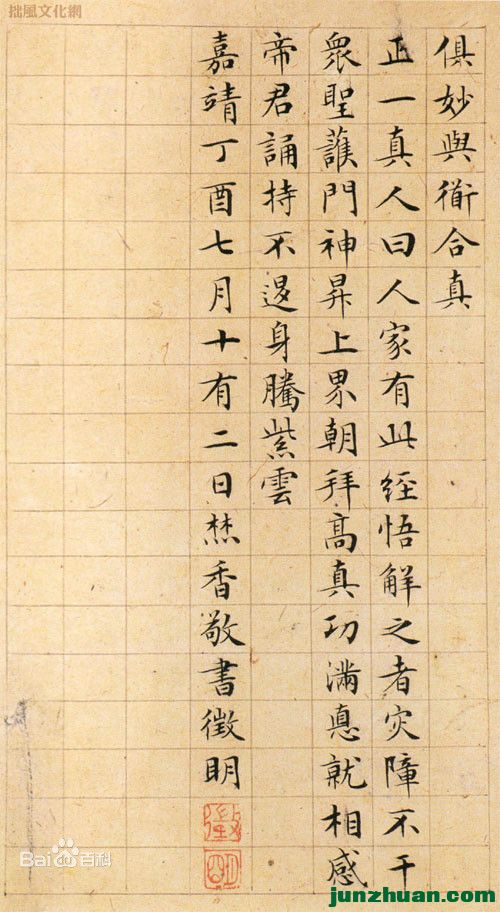 拙風文化網
俱妙與衜合真
正一真人曰人家有此經悟解之者灾障不干
衆聖護門神昇上界朝拜高真功滿悳就相感
帝君誦持不退身騰紫雲
嘉靖丁酉七月十有二日焚香敬書徵明
徵
明
Bai百科
junzhuan.com